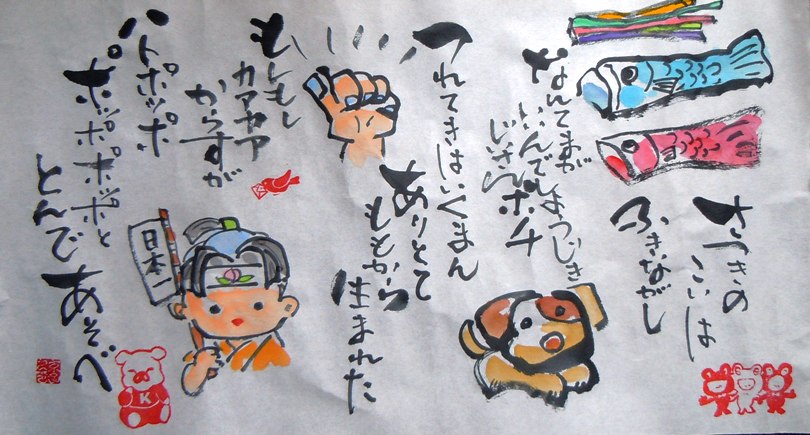 さつきの
こいは
ふきながし
なんてまが
いいんでしょうじき
じいさんポチ
つれてきはいくまん
ありとて
もとから
生まれた
日本一
もしもし
カアカア
からすが
ハトポッポ
ポッポポッポと
とんであそべ
K